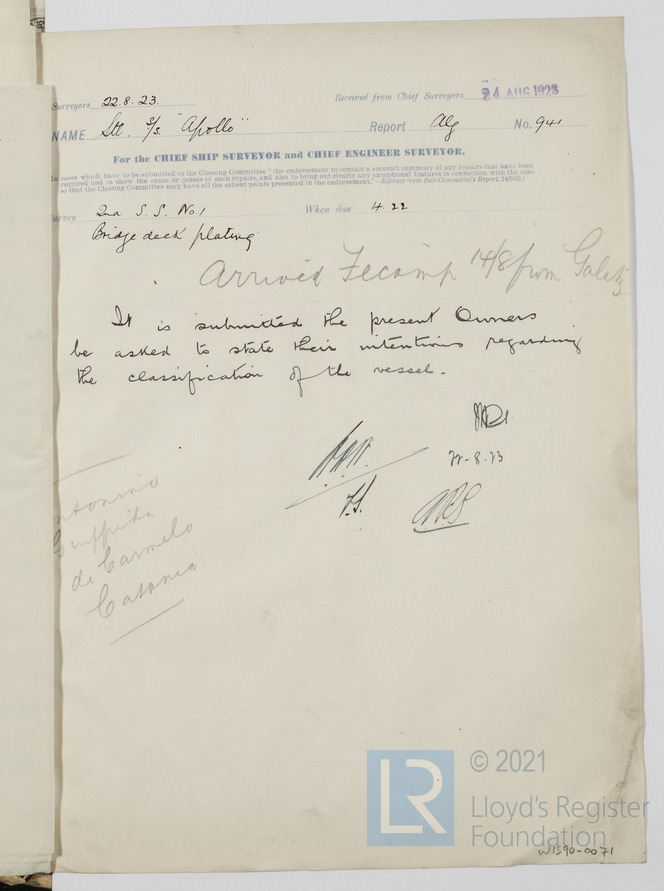 Surveyors 22.8.23. Received from Chief Surveyors 24 AUG 1923
NAME Stl. S/s. "Apollo" Report Alg No. 941
For the CHIEF SHIP SURVEYOR and CHIEF ENGINEER SURVEYOR.
in cases which have to be submitted to the Classing Committee "the endorsement to contain a succinct summary of any repairs that have been
required and to show the cause or causes of such repairs, and also to bring out clearly any exceptional features in connection with the case
so that the Classing Committee may have all the salient points presented in the endorsement."—Extract from Sub-Committee's Report,
urvey 2nd S. S. No. 1 When due 4.22
Bridge deck plating
Arrived Fecamp 14/8 from Galatz
It is submitted the present Owners
be asked to state their intentions regarding
the classification of the vessel.
22-8-23
ntonino
Giuffrida
di Carmelo
Catania
LR
© 2021
Lloyd's Register
Foundation
W1590-0071